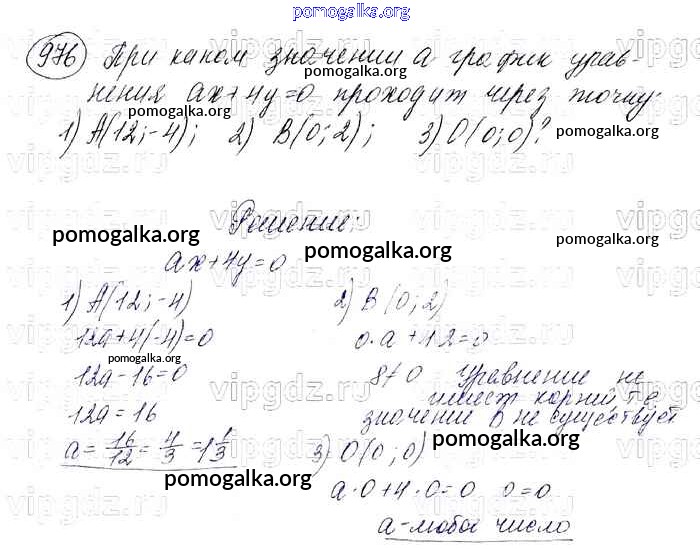 pomogalka.org
976 При каком значении а график урав-
нения ax+4y=0 проходит через точку:
1) A(12;-4); 2) B(0;2); 3) O(0;0)?
Решение:
ax+4y=0
1) A(12;-4)
12a+4(-4)=0
12a-16=0
12a=16
a=16/12=4/3=1 1/3
2) B(0;2)
0·a+4·2=0
8≠0 Уравнение не
имеет корней т.е.
значений В не существует
3) O(0;0)
a·0+4·0=0 0=0
a-любое число
pomogalka.org
pomogalka.org
pomogalka.org
pomogalka.org
pomogalka.org
pomogalka.org
pomogalka.org
pomogalka.org
pomogalka.org
pomogalka.org
pomogalka.org
vipgdz.ru
vipgdz.ru
vipgdz.ru